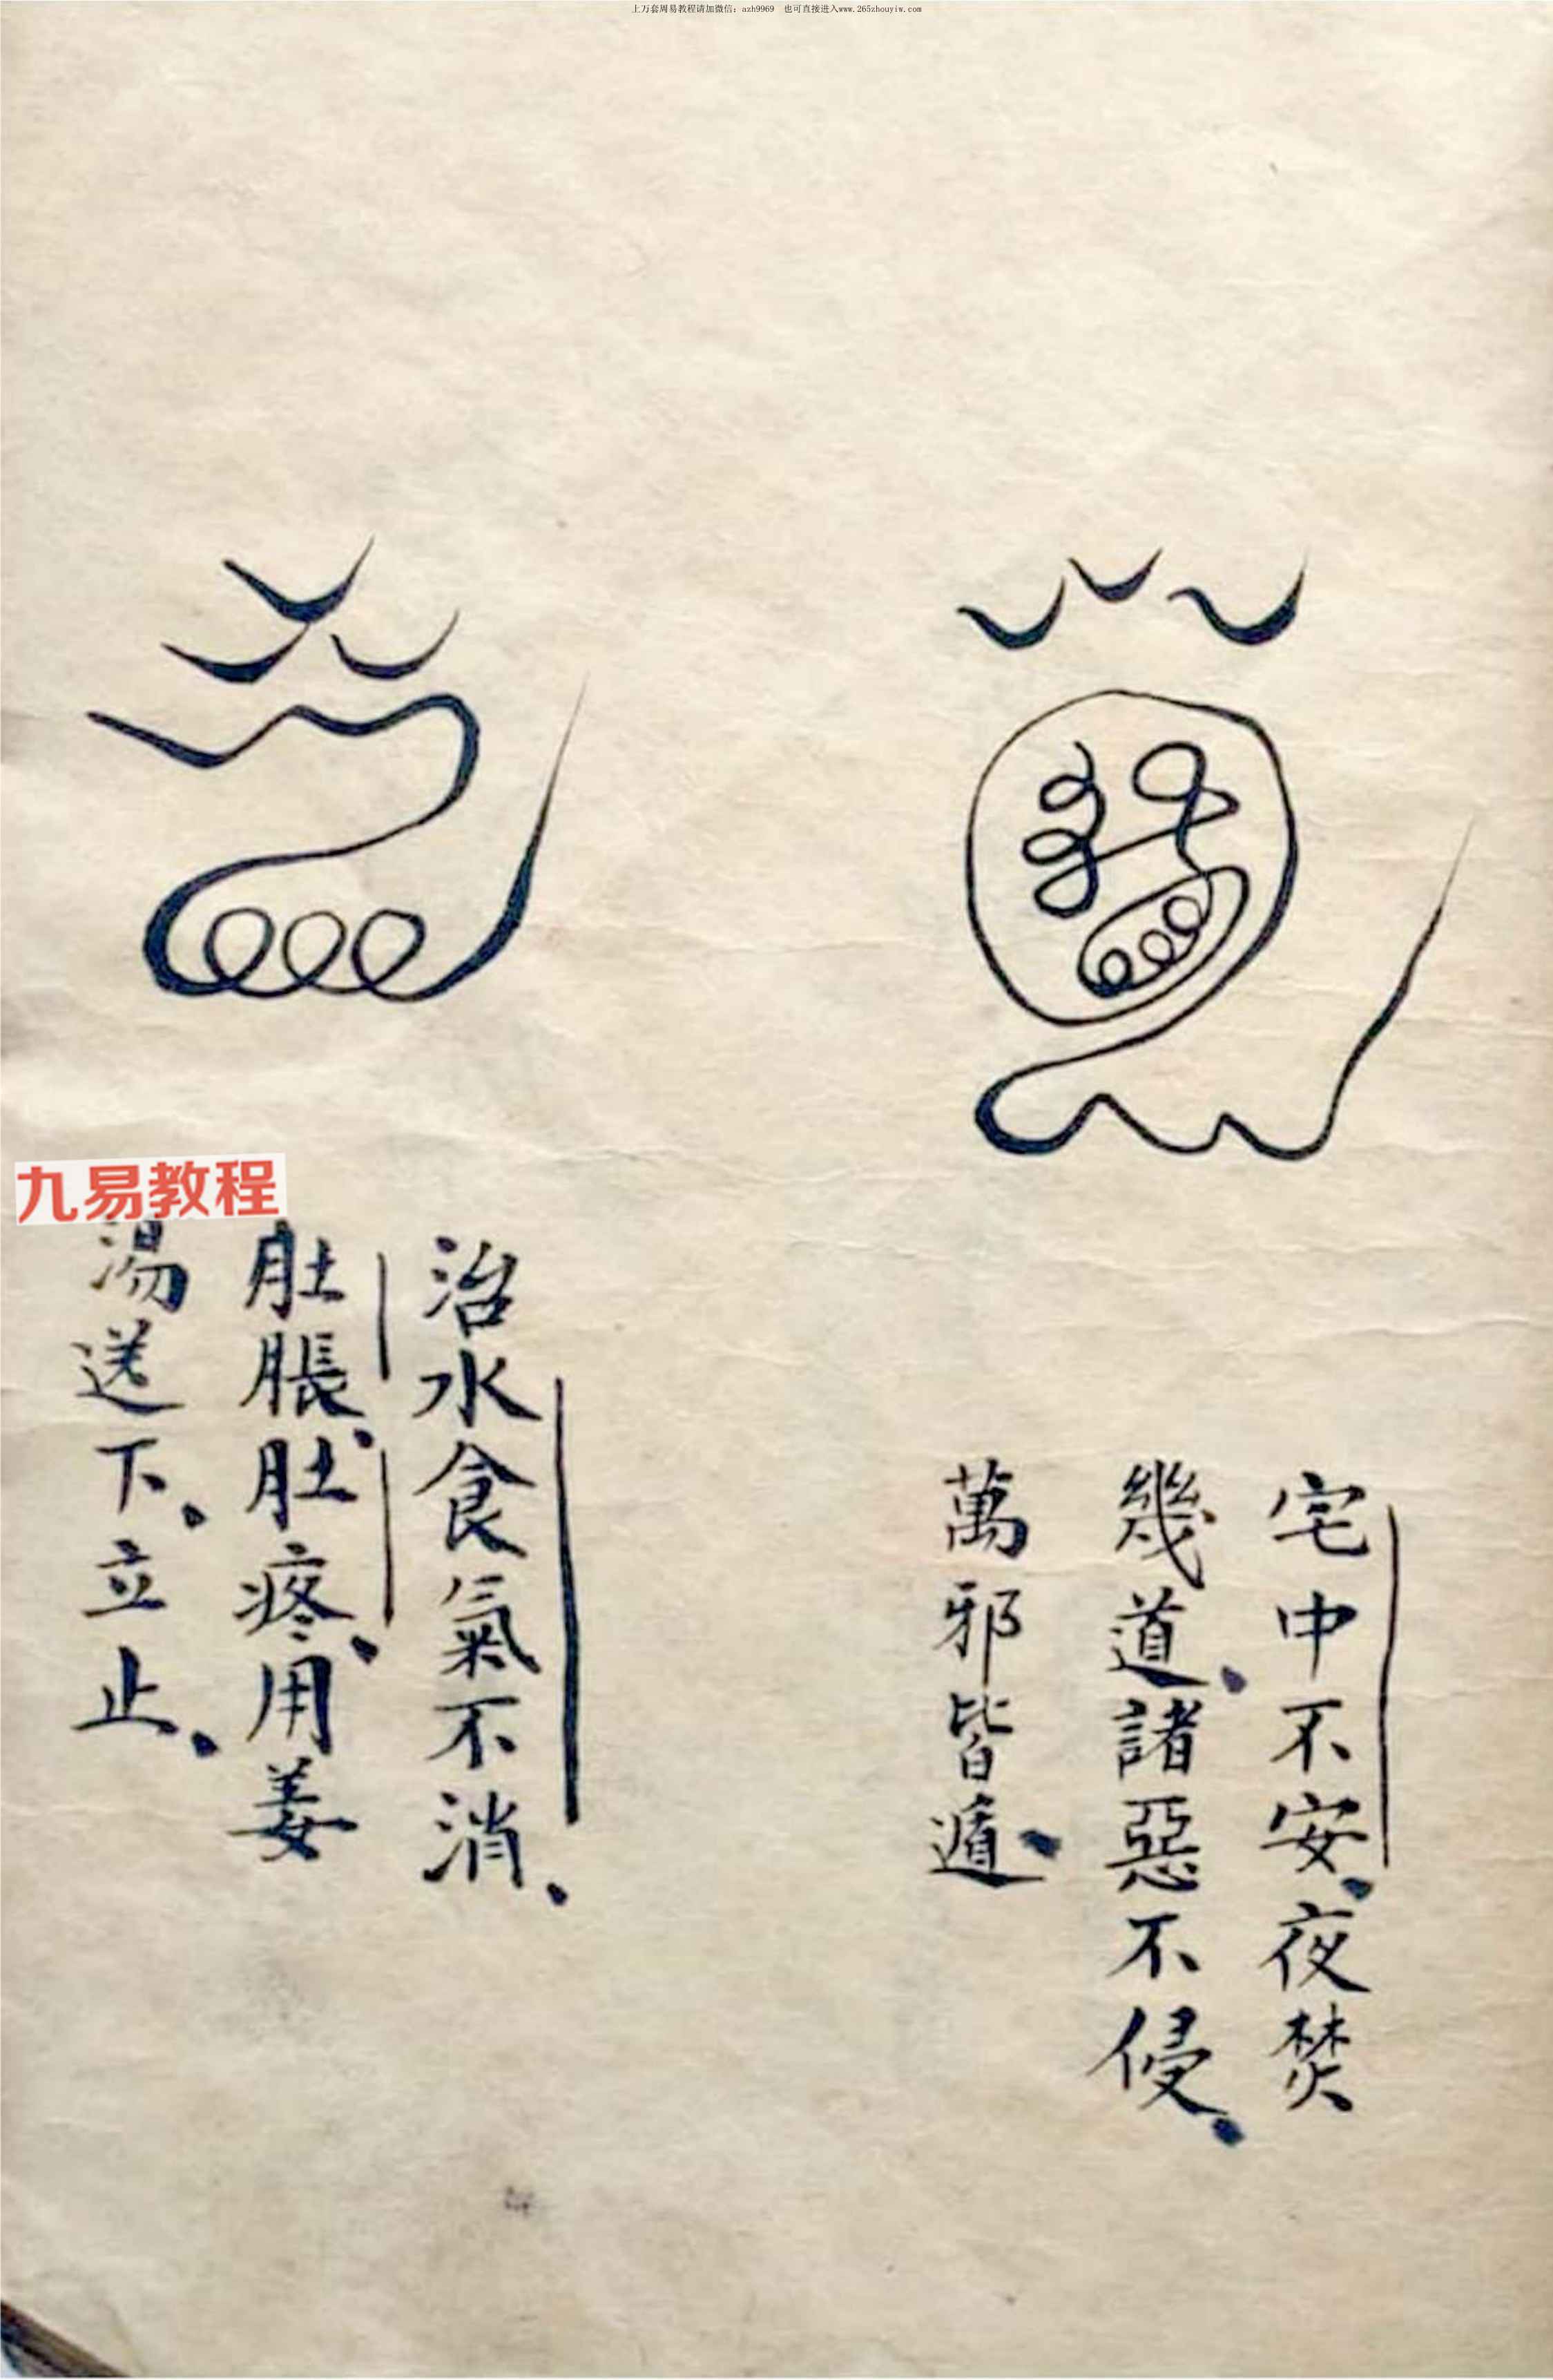 上万套周易教程请加微信：azh9969 也可直接进入www.265zhouyiw.com
宅中不安、夜焚
幾道、諸惡不侵、
萬邪皆遁、
治水食氣不消、
肚脹、肚疼、用姜
湯送下、立止、
九易教程